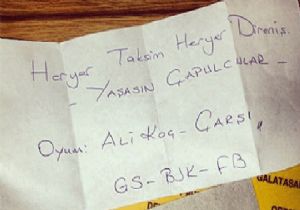 Heryer Taksim Heryer Direniş.
- YAŞASIN ÇAPULCULAR -
Oyum: ALi KOÇ - ÇARŞI
GS - BJK - FB
GALATASA